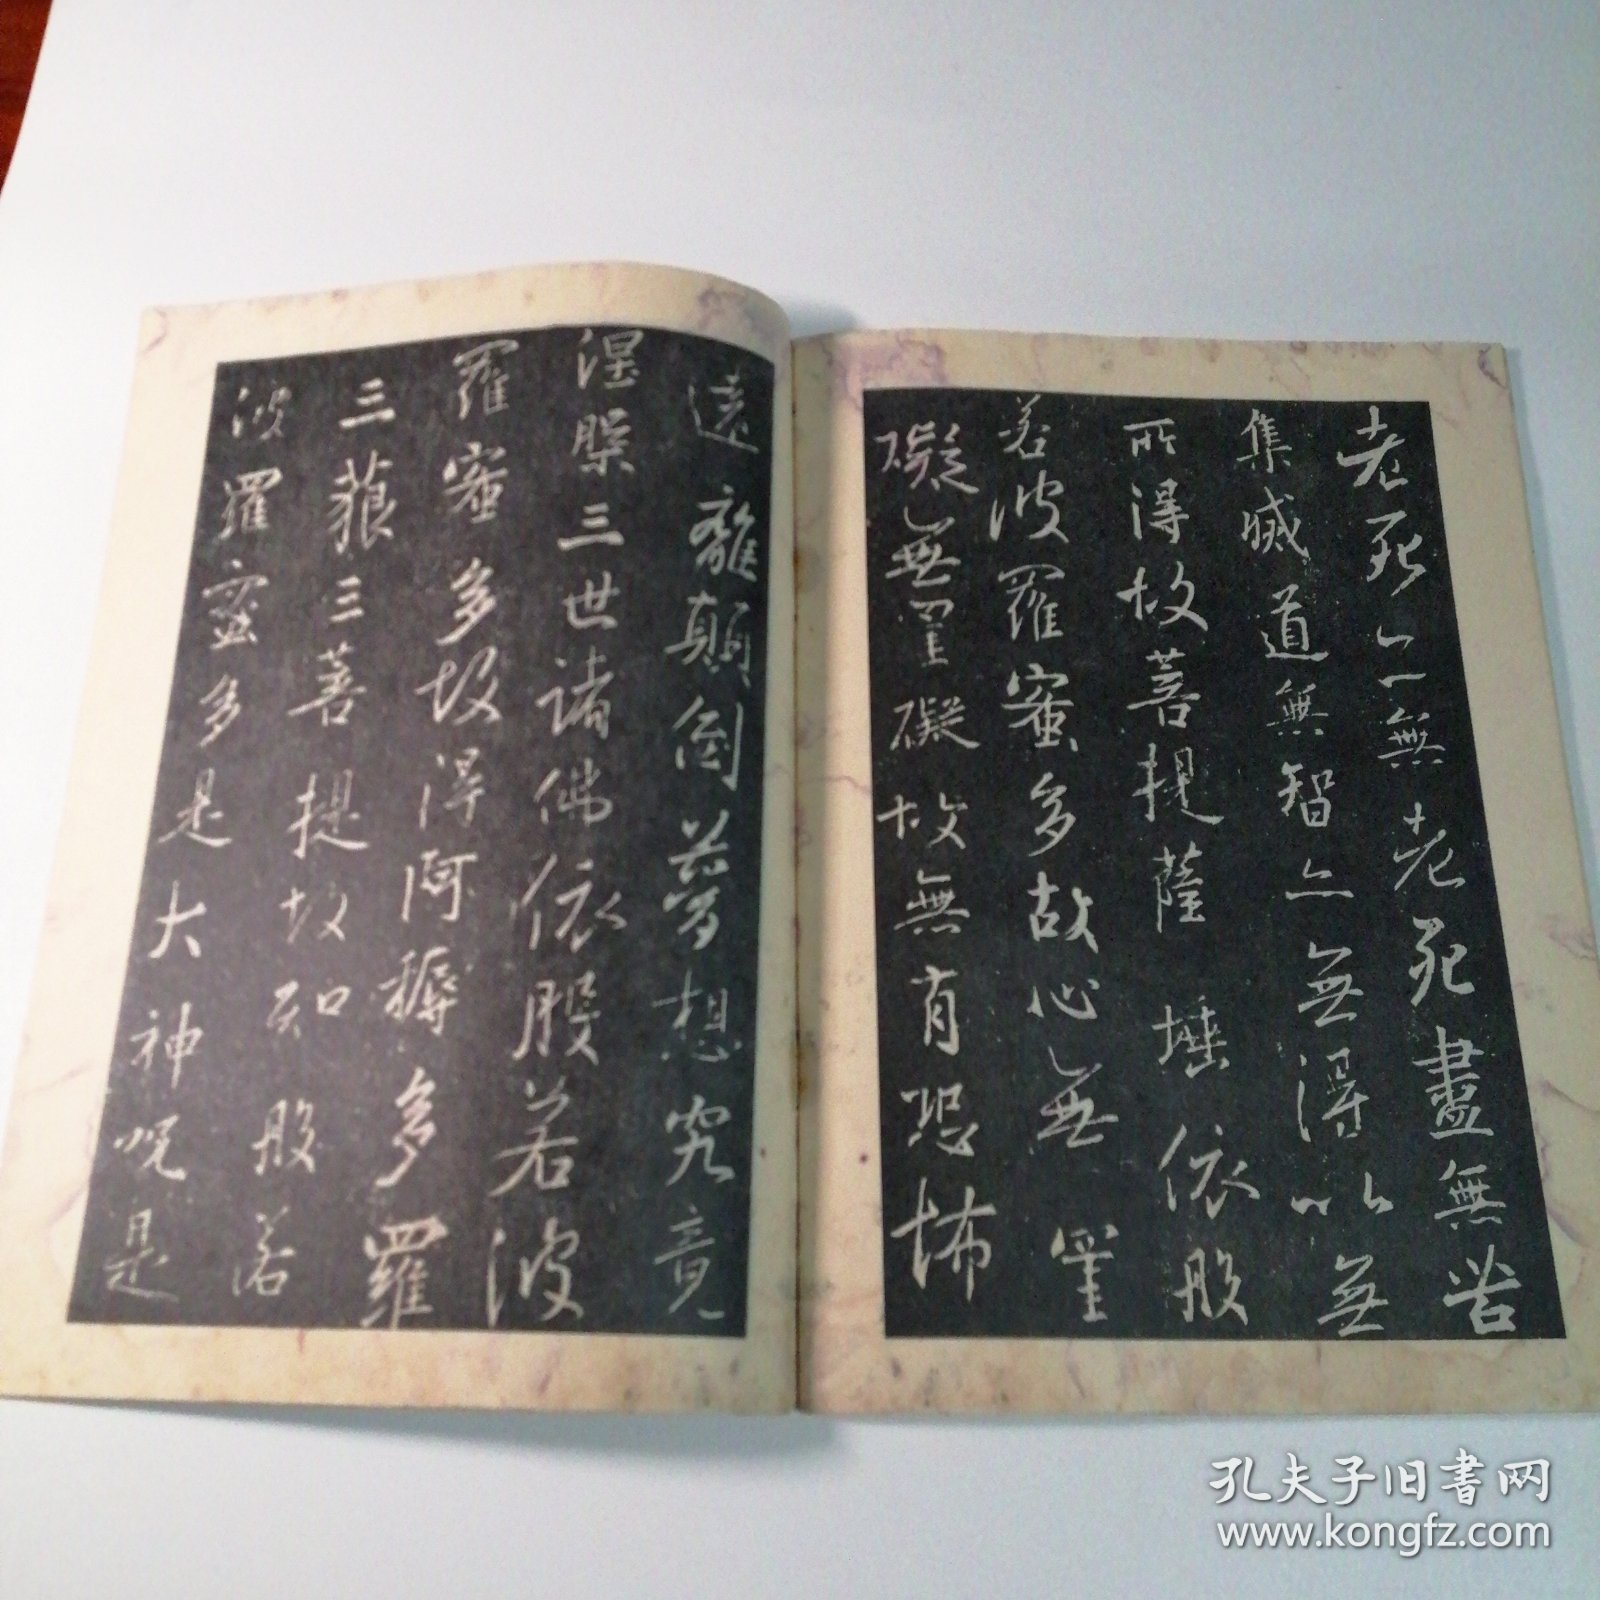 老死亦無老死盡無苦
集滅道無智亦無得以無
所得故菩提薩埵依般
若波羅蜜多故心無罣
礙無罣礙故無有恐怖
遠離顛倒夢想究竟
涅槃三世諸佛依般若波
羅蜜多故得阿耨多羅
三藐三菩提故知般若
波羅蜜多是大神呪是
孔夫子旧书网
www.kongfz.com